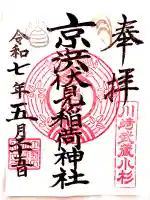 奉拝
川崎武蔵小杉
京濱伏見稲荷神社
令和七年五月五日